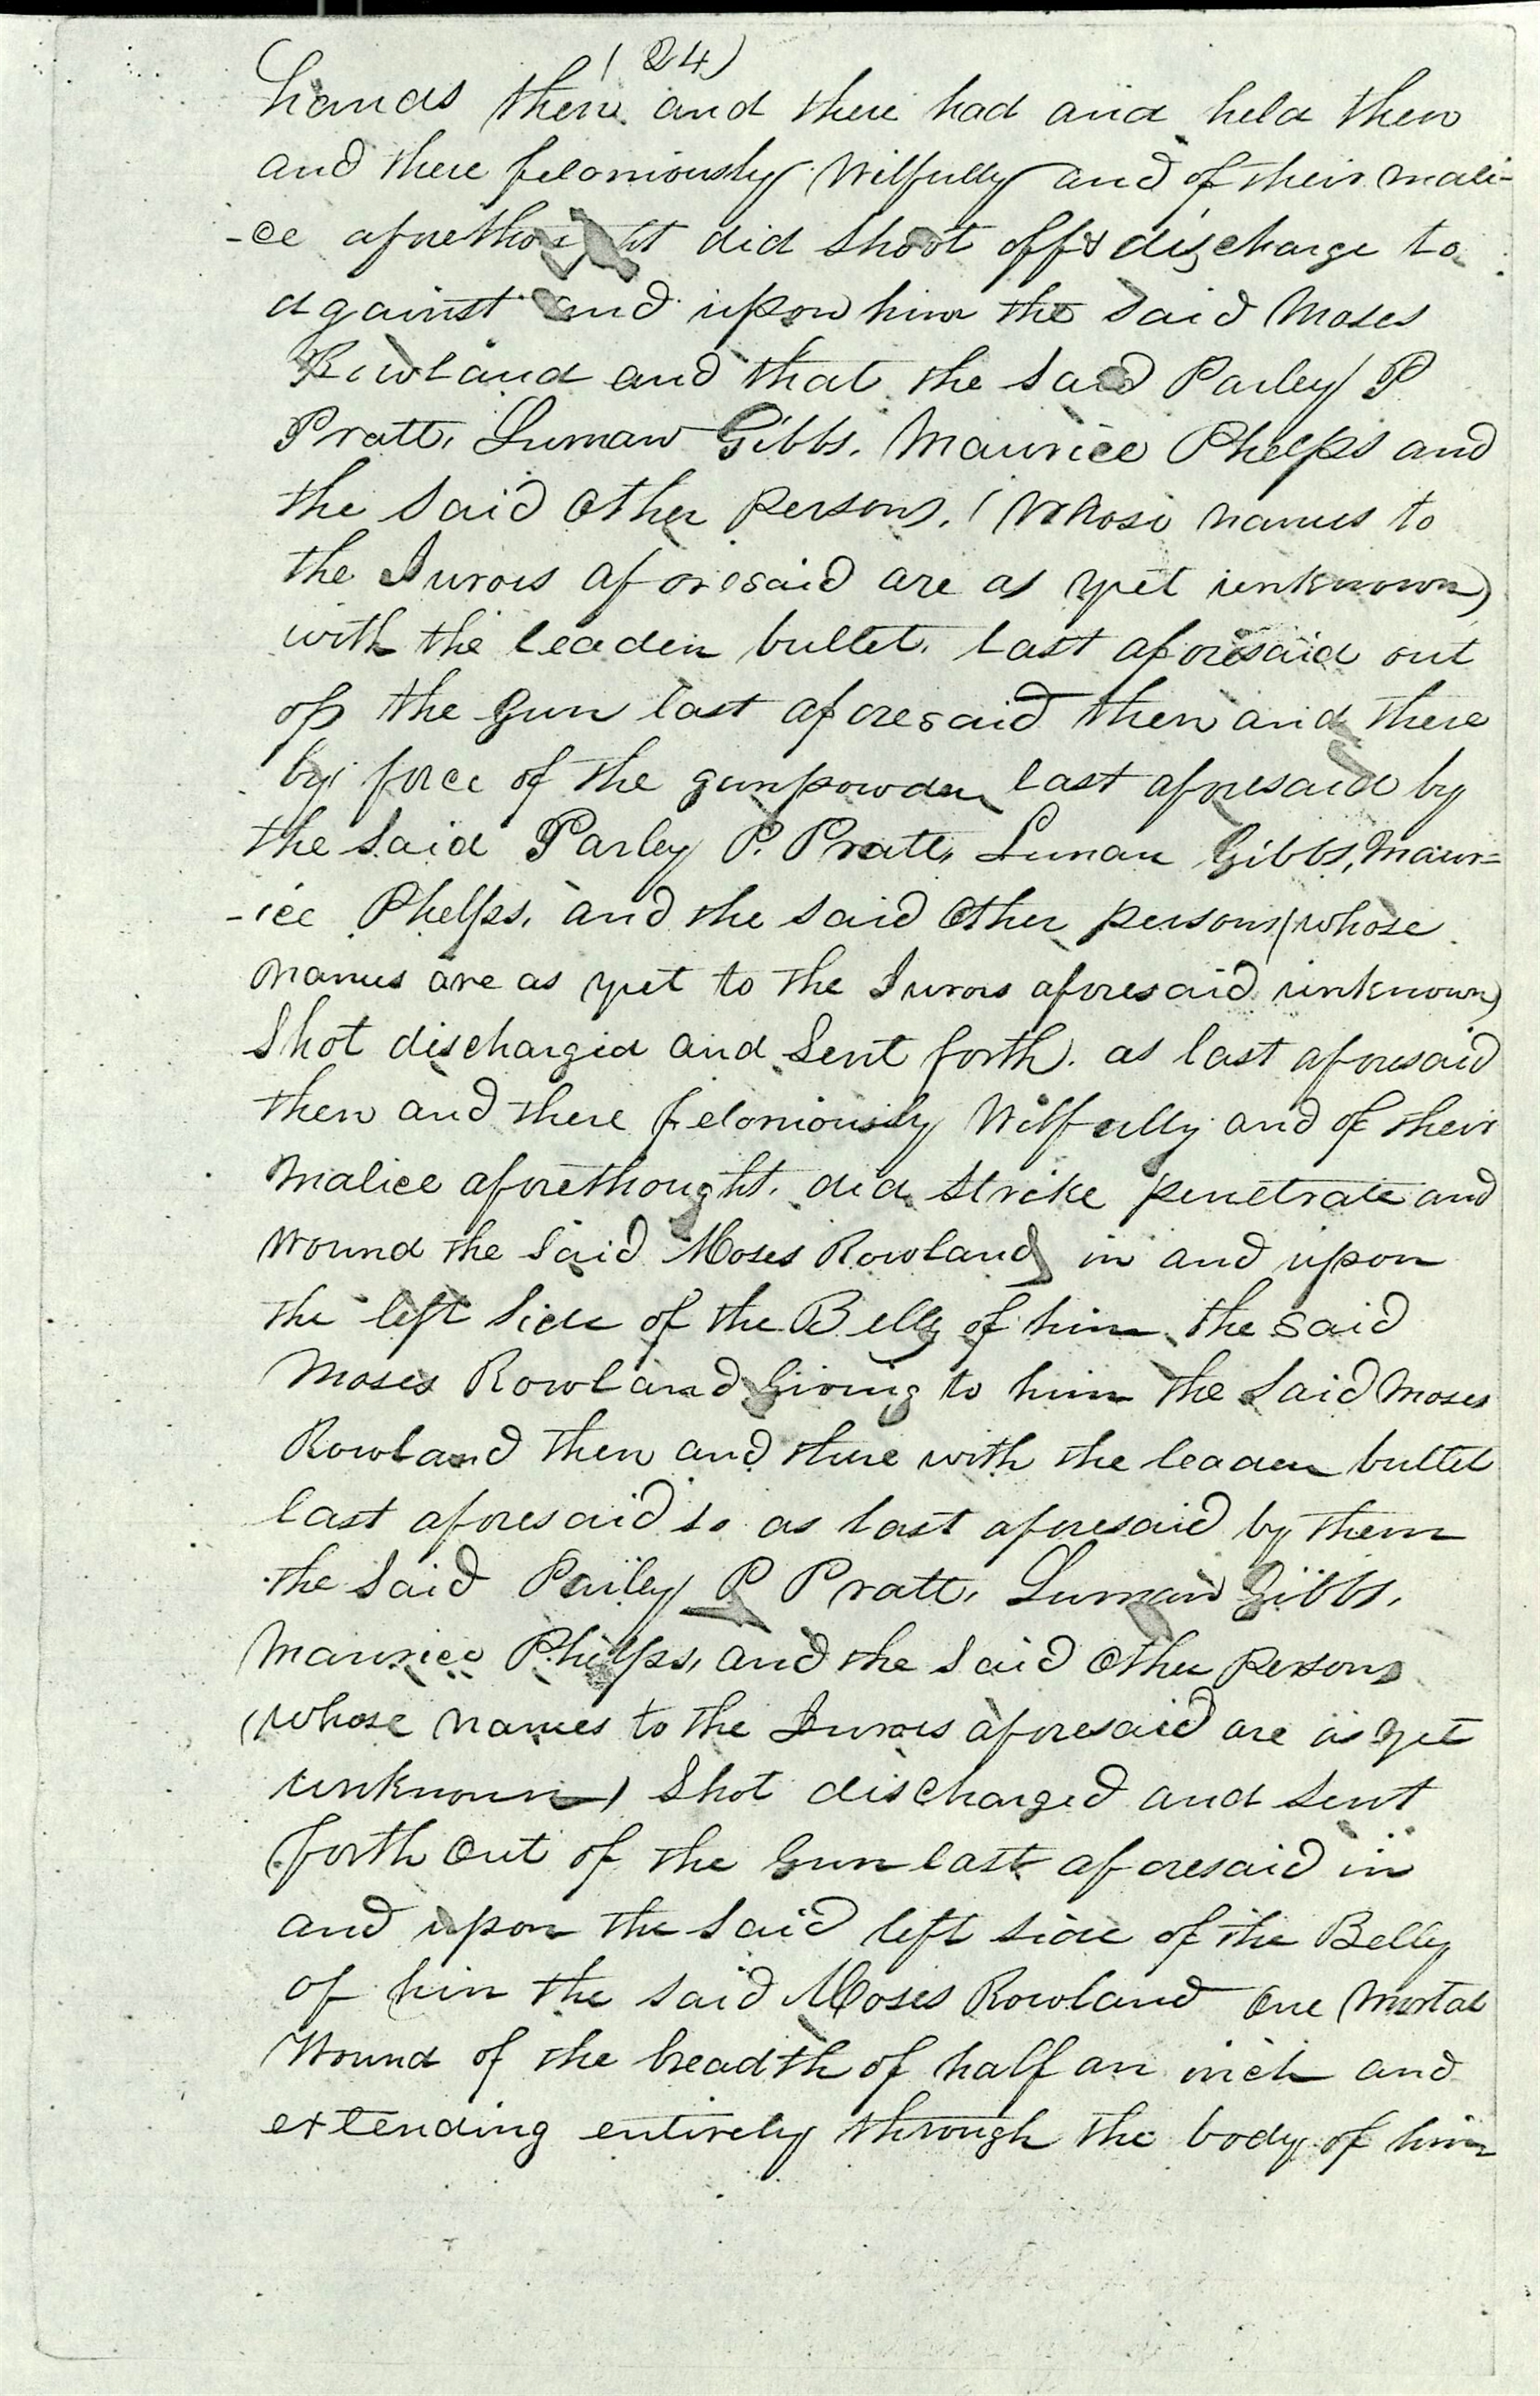 (24)
hands then and there had and held then
and there feloniously Wilfully and of their mali-
-ce aforethought did shoot off & discharge to
against and upon him the said Moses
Rowland and that the said Parley P
Pratt, Luman Gibbs, Maurice Phelps and
the said other persons, (Whose names to
the Jurors aforesaid are as yet unknown)
with the leaden bullet, last aforesaid out
of the Gun last aforesaid then and there
by force of the gunpowder last aforesaid by
the said Parley P. Pratt, Luman Gibbs, Maur=
-ice Phelps, and the said other persons (whose
names are as yet to the Jurors aforesaid unknown)
Shot discharged and Sent forth, as last aforesaid
then and there feloniously Wilfully and of their
malice aforethought, did strike penetrate and
wound the said Moses Rowland in and upon
the left side of the Belly of him the said
Moses Rowland Giving to him the said Moses
Rowland then and there with the leaden bullet
last aforesaid so as last aforesaid by them
the said Parley P Pratt, Luman Gibbs,
Maurice Phelps, and the said other persons
(Whose names to the Jurors aforesaid are as yet
unknown) Shot discharged and sent
forth out of the Gun last aforesaid in
and upon the said left side of the Belly
of him the said Moses Rowland One Mortal
Wound of the breadth of half an inch and
extending entirely through the body of him